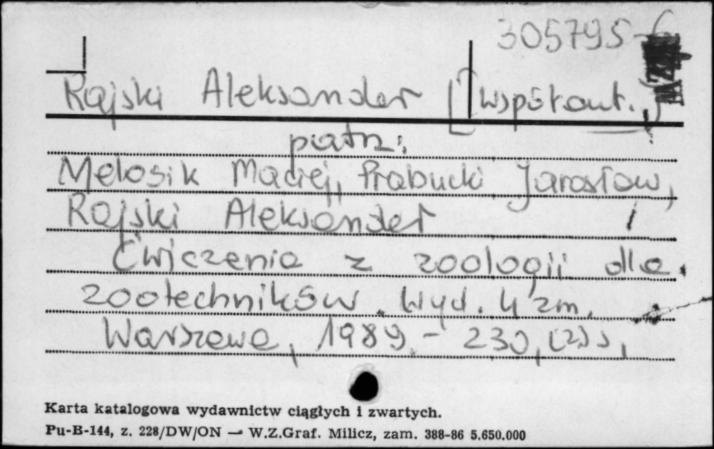 305795
Rajski Aleksander [współaut.]
patrz:
Melosik Maciej, Prabucki Jarosław,
Rajski Aleksander
Ćwiczenia z zoologii dla
zootechników. Wyd. 4 zm.
Warszawa, 1989. - 230, [2] s,
Karta katalogowa wydawnictw ciągłych i zwartych.
Pu-B-144, z. 228/DW/ON — W.Z.Graf. Milicz, zam. 388-86 5.650.000